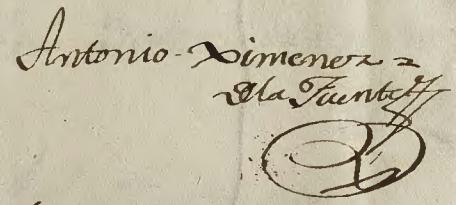 Antonio Ximenez =
de la Fuente